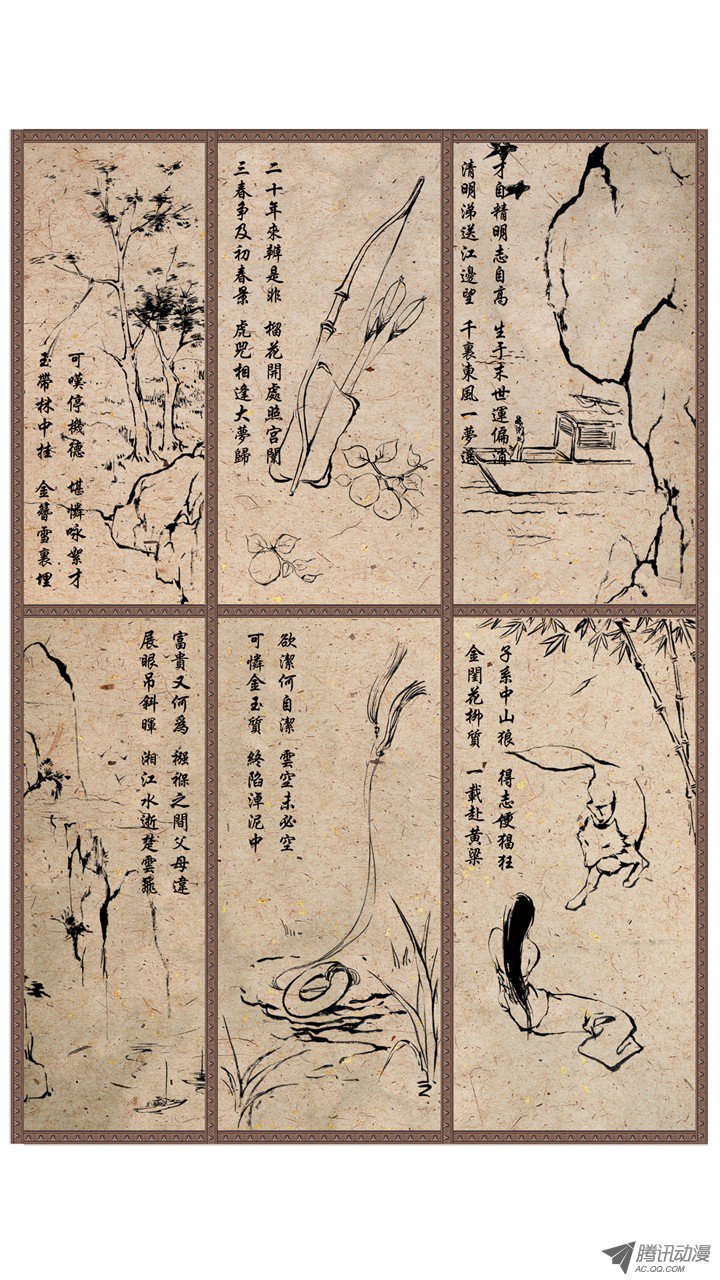 可嘆停機德 堪憐咏絮才
玉帶林中挂 金簪雪裏埋
二十年來辨是非 榴花開處照宮闈
三春争及初春景 虎兕相逢大夢歸
才自精明志自高 生于末世運偏消
清明涕送江邊望 千裏東風一夢遥
富貴又何爲 襁褓之間父母違
展眼吊斜暉 湘江水逝楚雲飛
欲潔何自潔 雲空未必空
可憐金玉質 終陷淖泥中
子系中山狼 得志便猖狂
金閨花柳質 一載赴黄粱
腾讯动漫
AC.QQ.COM